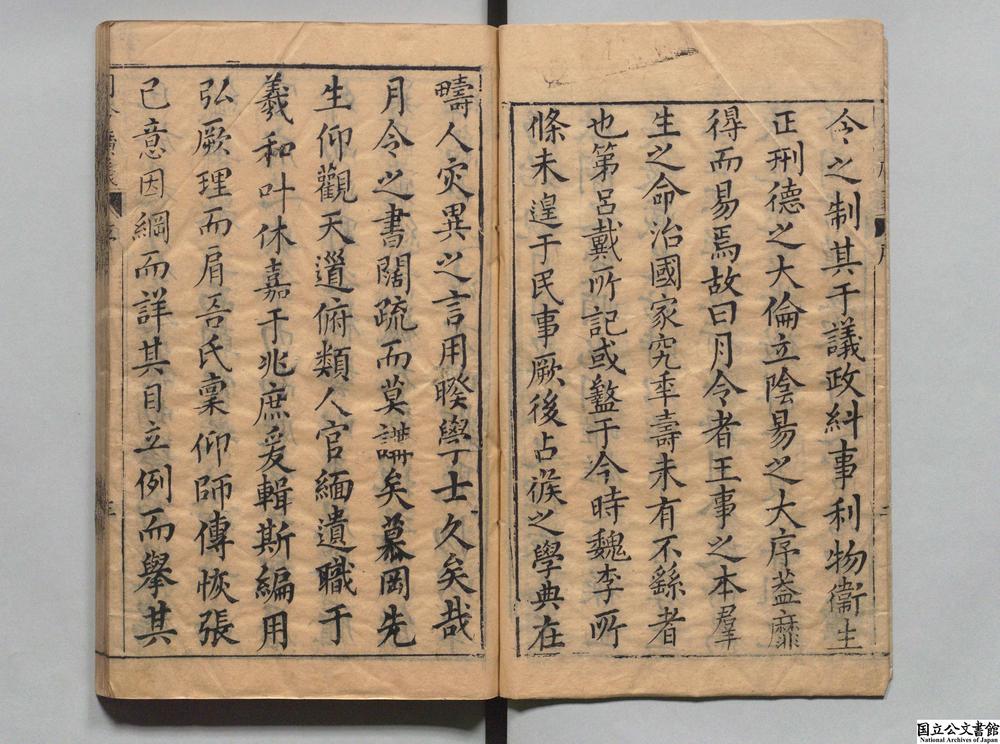 令之制其于議政糾事利物衞生
正刑德之大倫立陰昜之大序葢靡
得而易焉故曰月令者王事之本羣
生之命治國家究年壽未有不繇者
也第呂戴所記或盭于今時魏李所
條未遑于民事厥後占候之學典在
疇人灾異之言用暌學士久矣哉
月令之書闊疏而莫講矣慕岡先
生仰觀天道俯類人官緬遺職于
羲和叶休嘉于兆庶爰輯斯編用
弘厥理而肩吾氏稟仰師傳恢張
己意因綱而詳其目立例而舉其
国立公文書館
National Archives of Japan